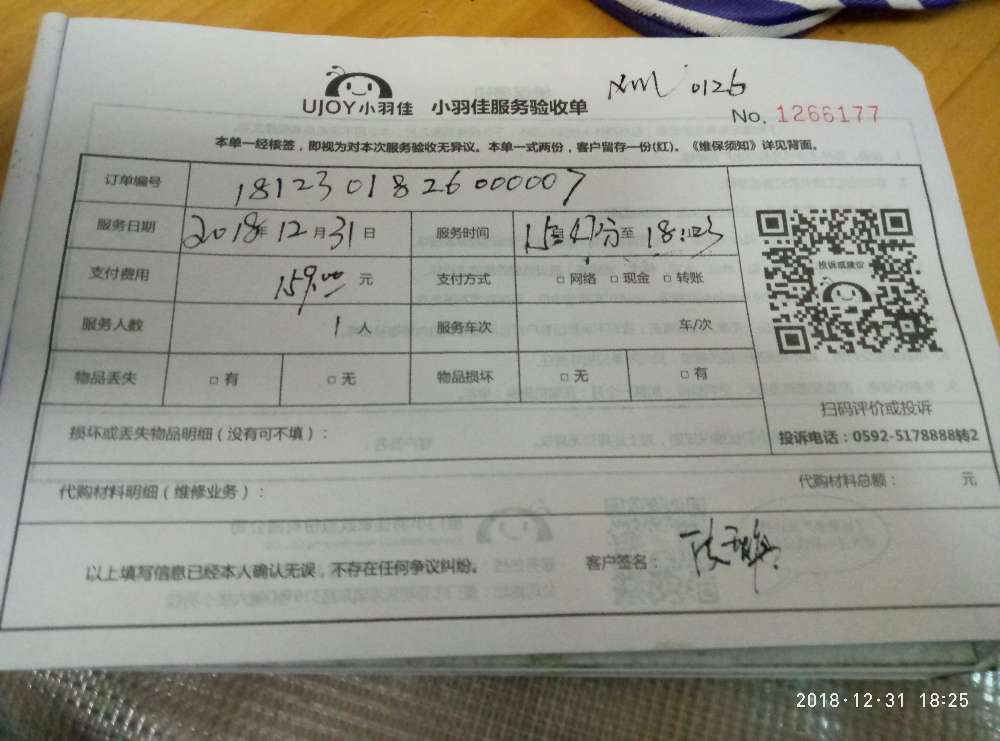 XM 0126
UJOY小羽佳 小羽佳服务验收单
No. 1266177
本单一经核签，即视为对本次服务验收无异议。本单一式两份，客户留存一份(红)。《维保须知》详见背面。
订单编号 18123018260000007
服务日期 2018年12月31日 服务时间 15时47分至18:03
支付费用 159.00元 支付方式 □网络 □现金 □转账
服务人数 1人 服务车次 车/次
物品丢失 □有 □无 物品损坏 □无 □有
投诉或建议
扫码评价或投诉
投诉电话：0592-5178888转2
损坏或丢失物品明细（没有可不填）：
代购材料明细（维修业务）： 代购材料总额： 元
以上填写信息已经本人确认无误，不存在任何争议纠纷。 客户签名：
2018·12·31 18:25